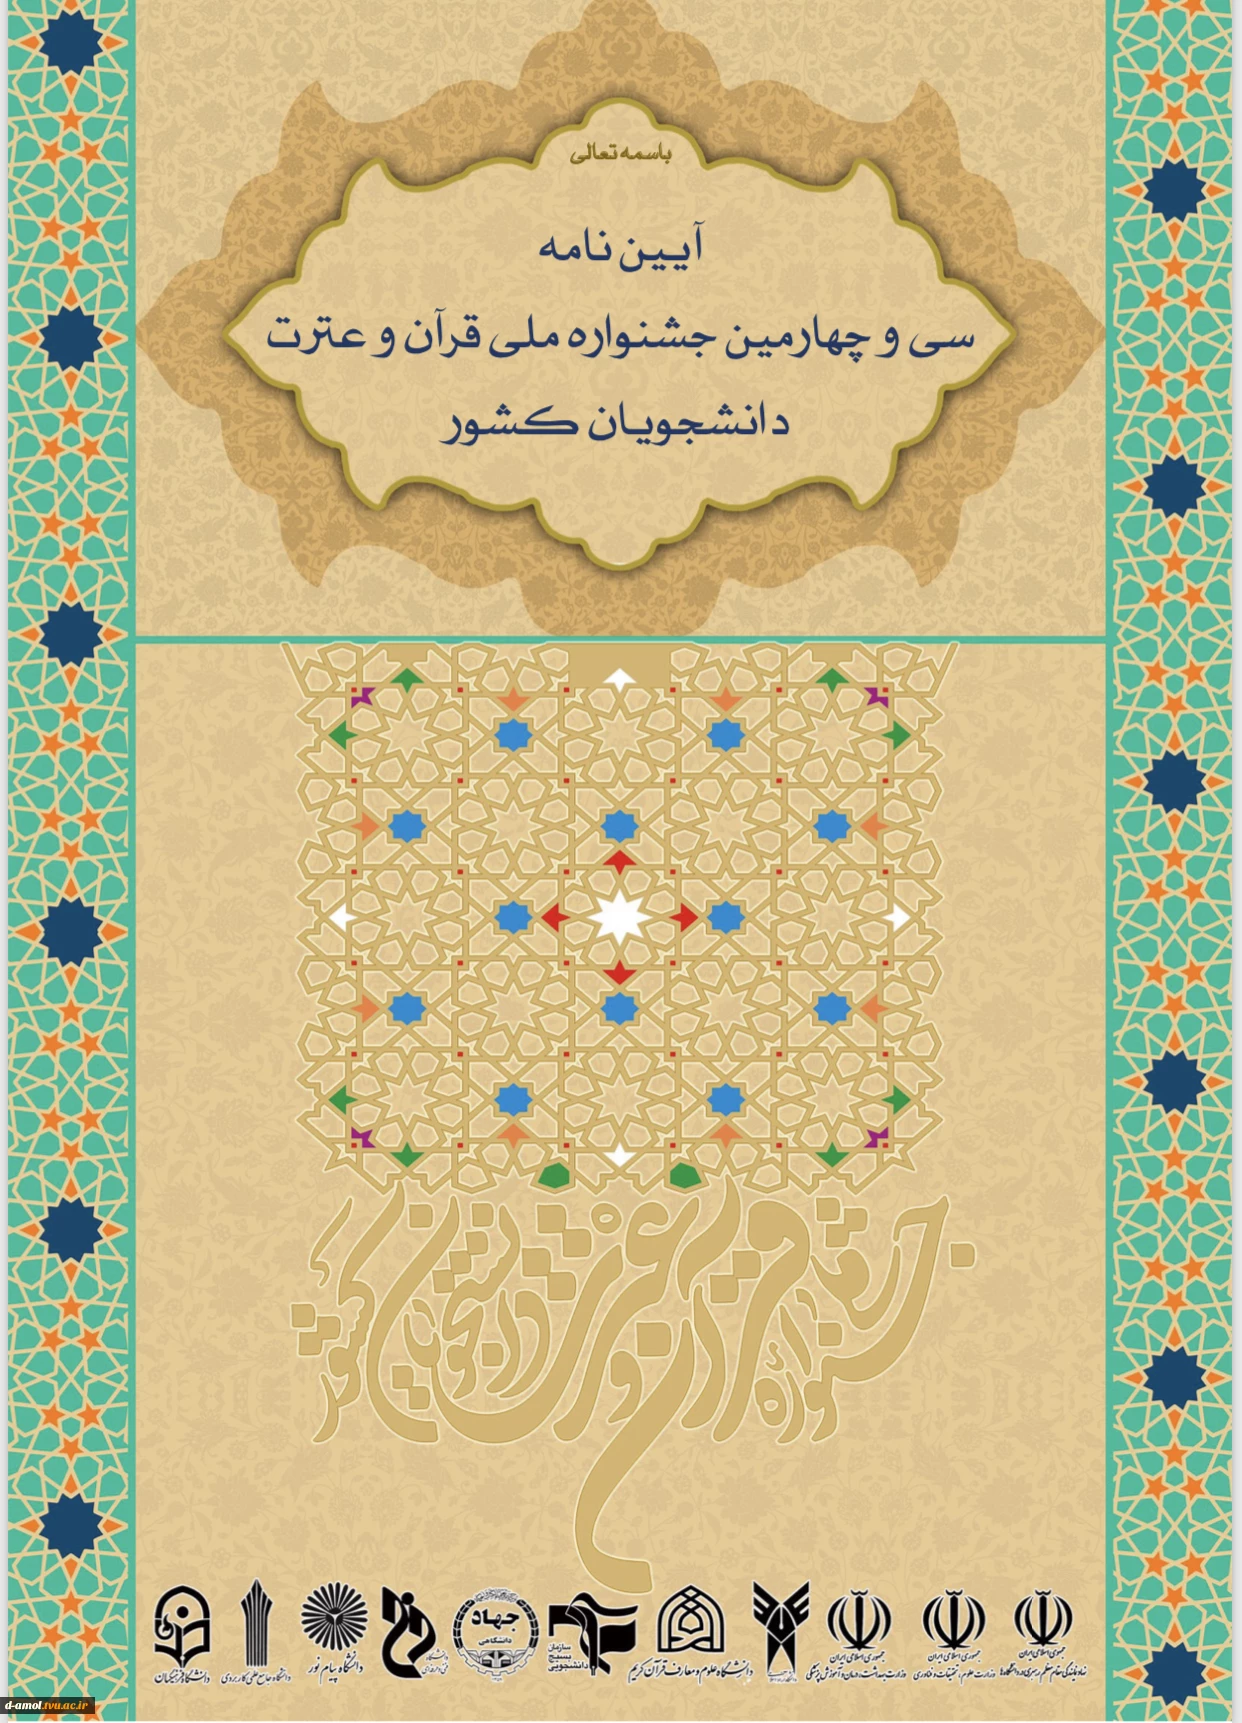 باسمه تعالی
آیین نامه
سی و چهارمین جشنواره ملی قرآن و عترت
دانشجویان کشور
جشنواره قرآن و عترت دانشجویان کشور
جمهوری اسلامی ایران
نهاد نمایندگی مقام معظم رهبری در دانشگاه‌ها
جمهوری اسلامی ایران
وزارت علوم، تحقیقات و فناوری
جمهوری اسلامی ایران
وزارت بهداشت، درمان و آموزش پزشکی
دانشگاه علوم و معارف قرآن کریم
سازمان
بسیج
دانشجویی
جهاد
دانشگاهی
دانشگاه پیام نور
دانشگاه جامع علمی کاربردی
دانشگاه فرهنگیان
d-amol.tvu.ac.ir